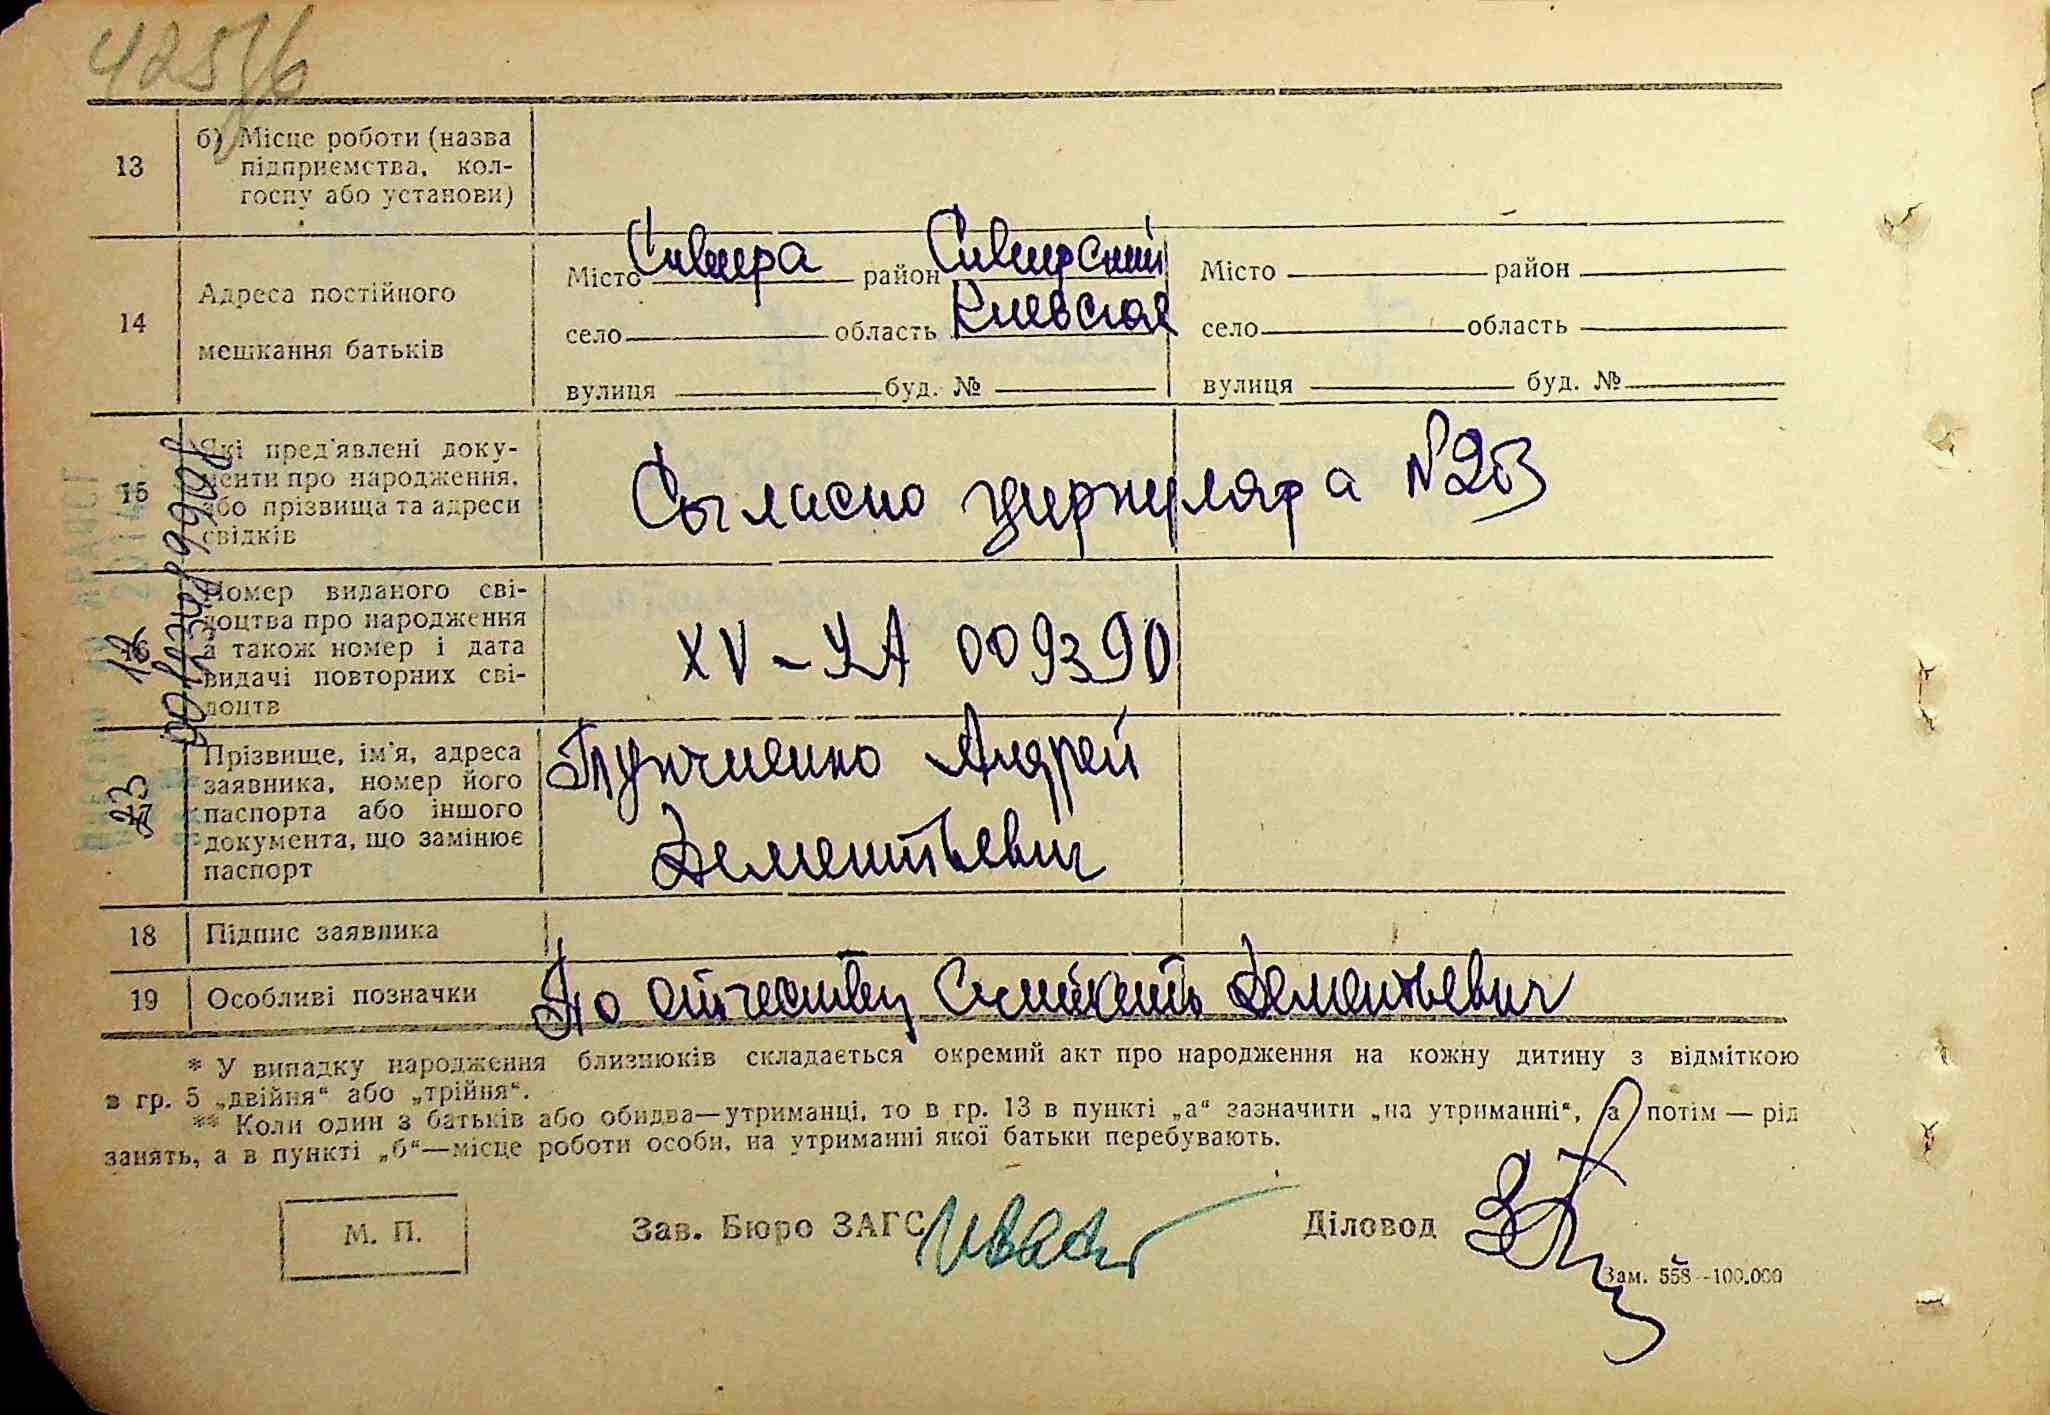 42576
13
б) Місце роботи (назва
підприємства, кол-
госпу або установи)
14
Адреса постійного
мешкання батьків
Місто Сквира район Сквирский
село область Киевская
вулиця буд. №
Місто район
село область
вулиця буд. №
15
Які пред'явлені доку-
менти про народження,
або прізвища та адреси
свідків
Сыгласно циркуляра №203
16
Номер виданого сві-
доцтва про народження
а також номер і дата
видачі повторних сві-
доцтв
XV-УА 009390
17
Прізвище, ім'я, адреса
заявника, номер його
паспорта або іншого
документа, що замінює
паспорт
Андрей
Дементьевич
18
Підпис заявника
19
Особливі позначки
По отчеству Считать Дементьевич
* У випадку народження близнюків складається окремий акт про народження на кожну дитину з відміткою
в гр. 5 „двійня“ або „трійня“.
** Коли один з батьків або обидва—утриманці, то в гр. 13 в пункті „а“ зазначити „на утриманні“, а потім — рід
занять, а в пункті „б“—місце роботи особи, на утриманні якої батьки перебувають.
М. П.
Зав. Бюро ЗАГС
Діловод
Зам. 558--100.000